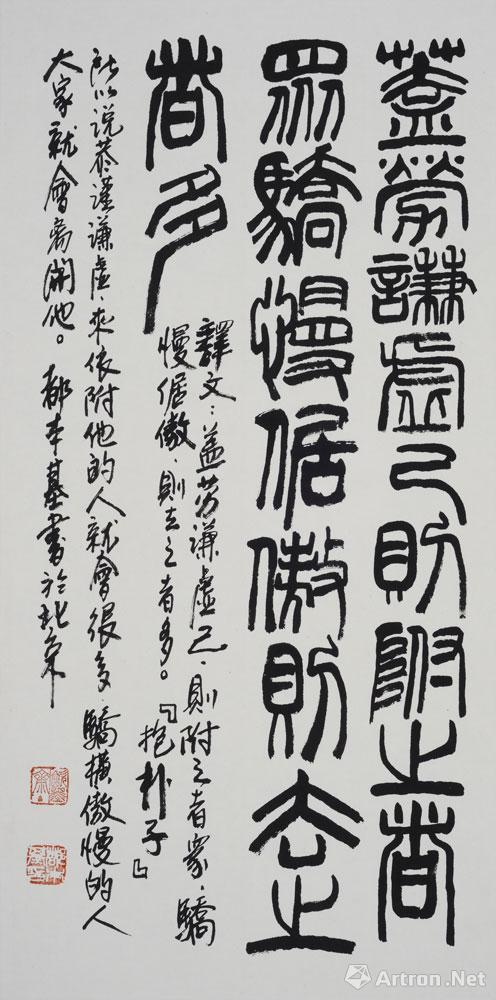 蓋勞謙虛己則附之者
眾驕慢倨傲則去之
者多
釋文：蓋劳谦虚己、則附之者衆、驕
慢倨傲、則去之者多。『抱朴子』
所以说恭谨谦虚、来依附他的人就會很多、驕横傲慢的人
大家就會离開他。都本基書於北京
Artron.Net